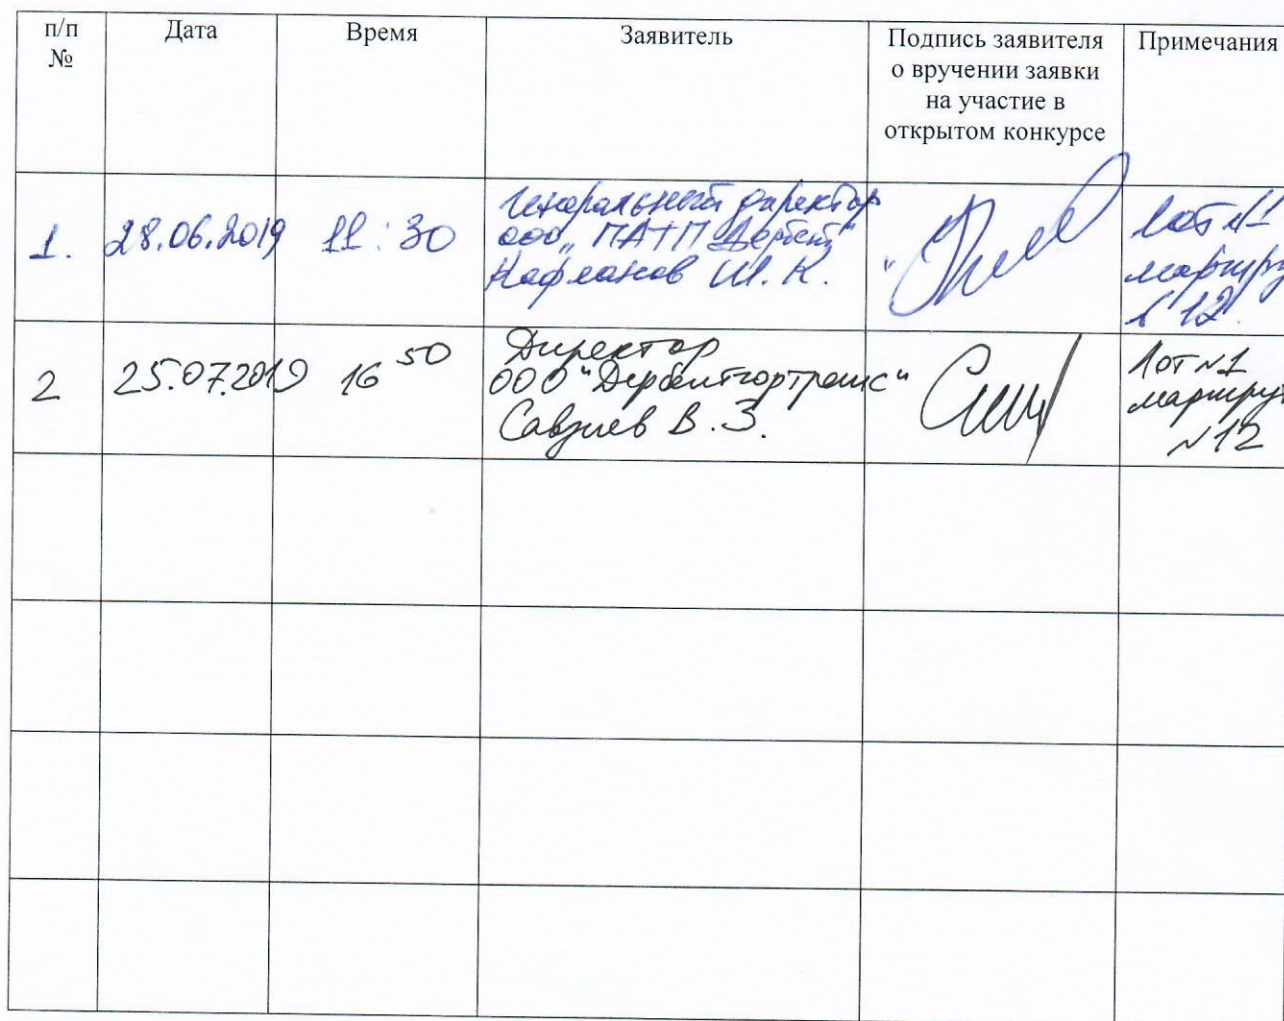 п/п
№
Дата
Время
Заявитель
Подпись заявителя
о вручении заявки
на участие в
открытом конкурсе
Примечания
1.
28.06.2019
11:30
Генеральный директор
ооо „ПАТП Дербент"
Ш. К.
Лот №1
маршрут
12
2
25.07.2019
16 50
Директор
ООО "Дербентгортранс"
Савзиев В. З.
Лот №1
маршрут
№12